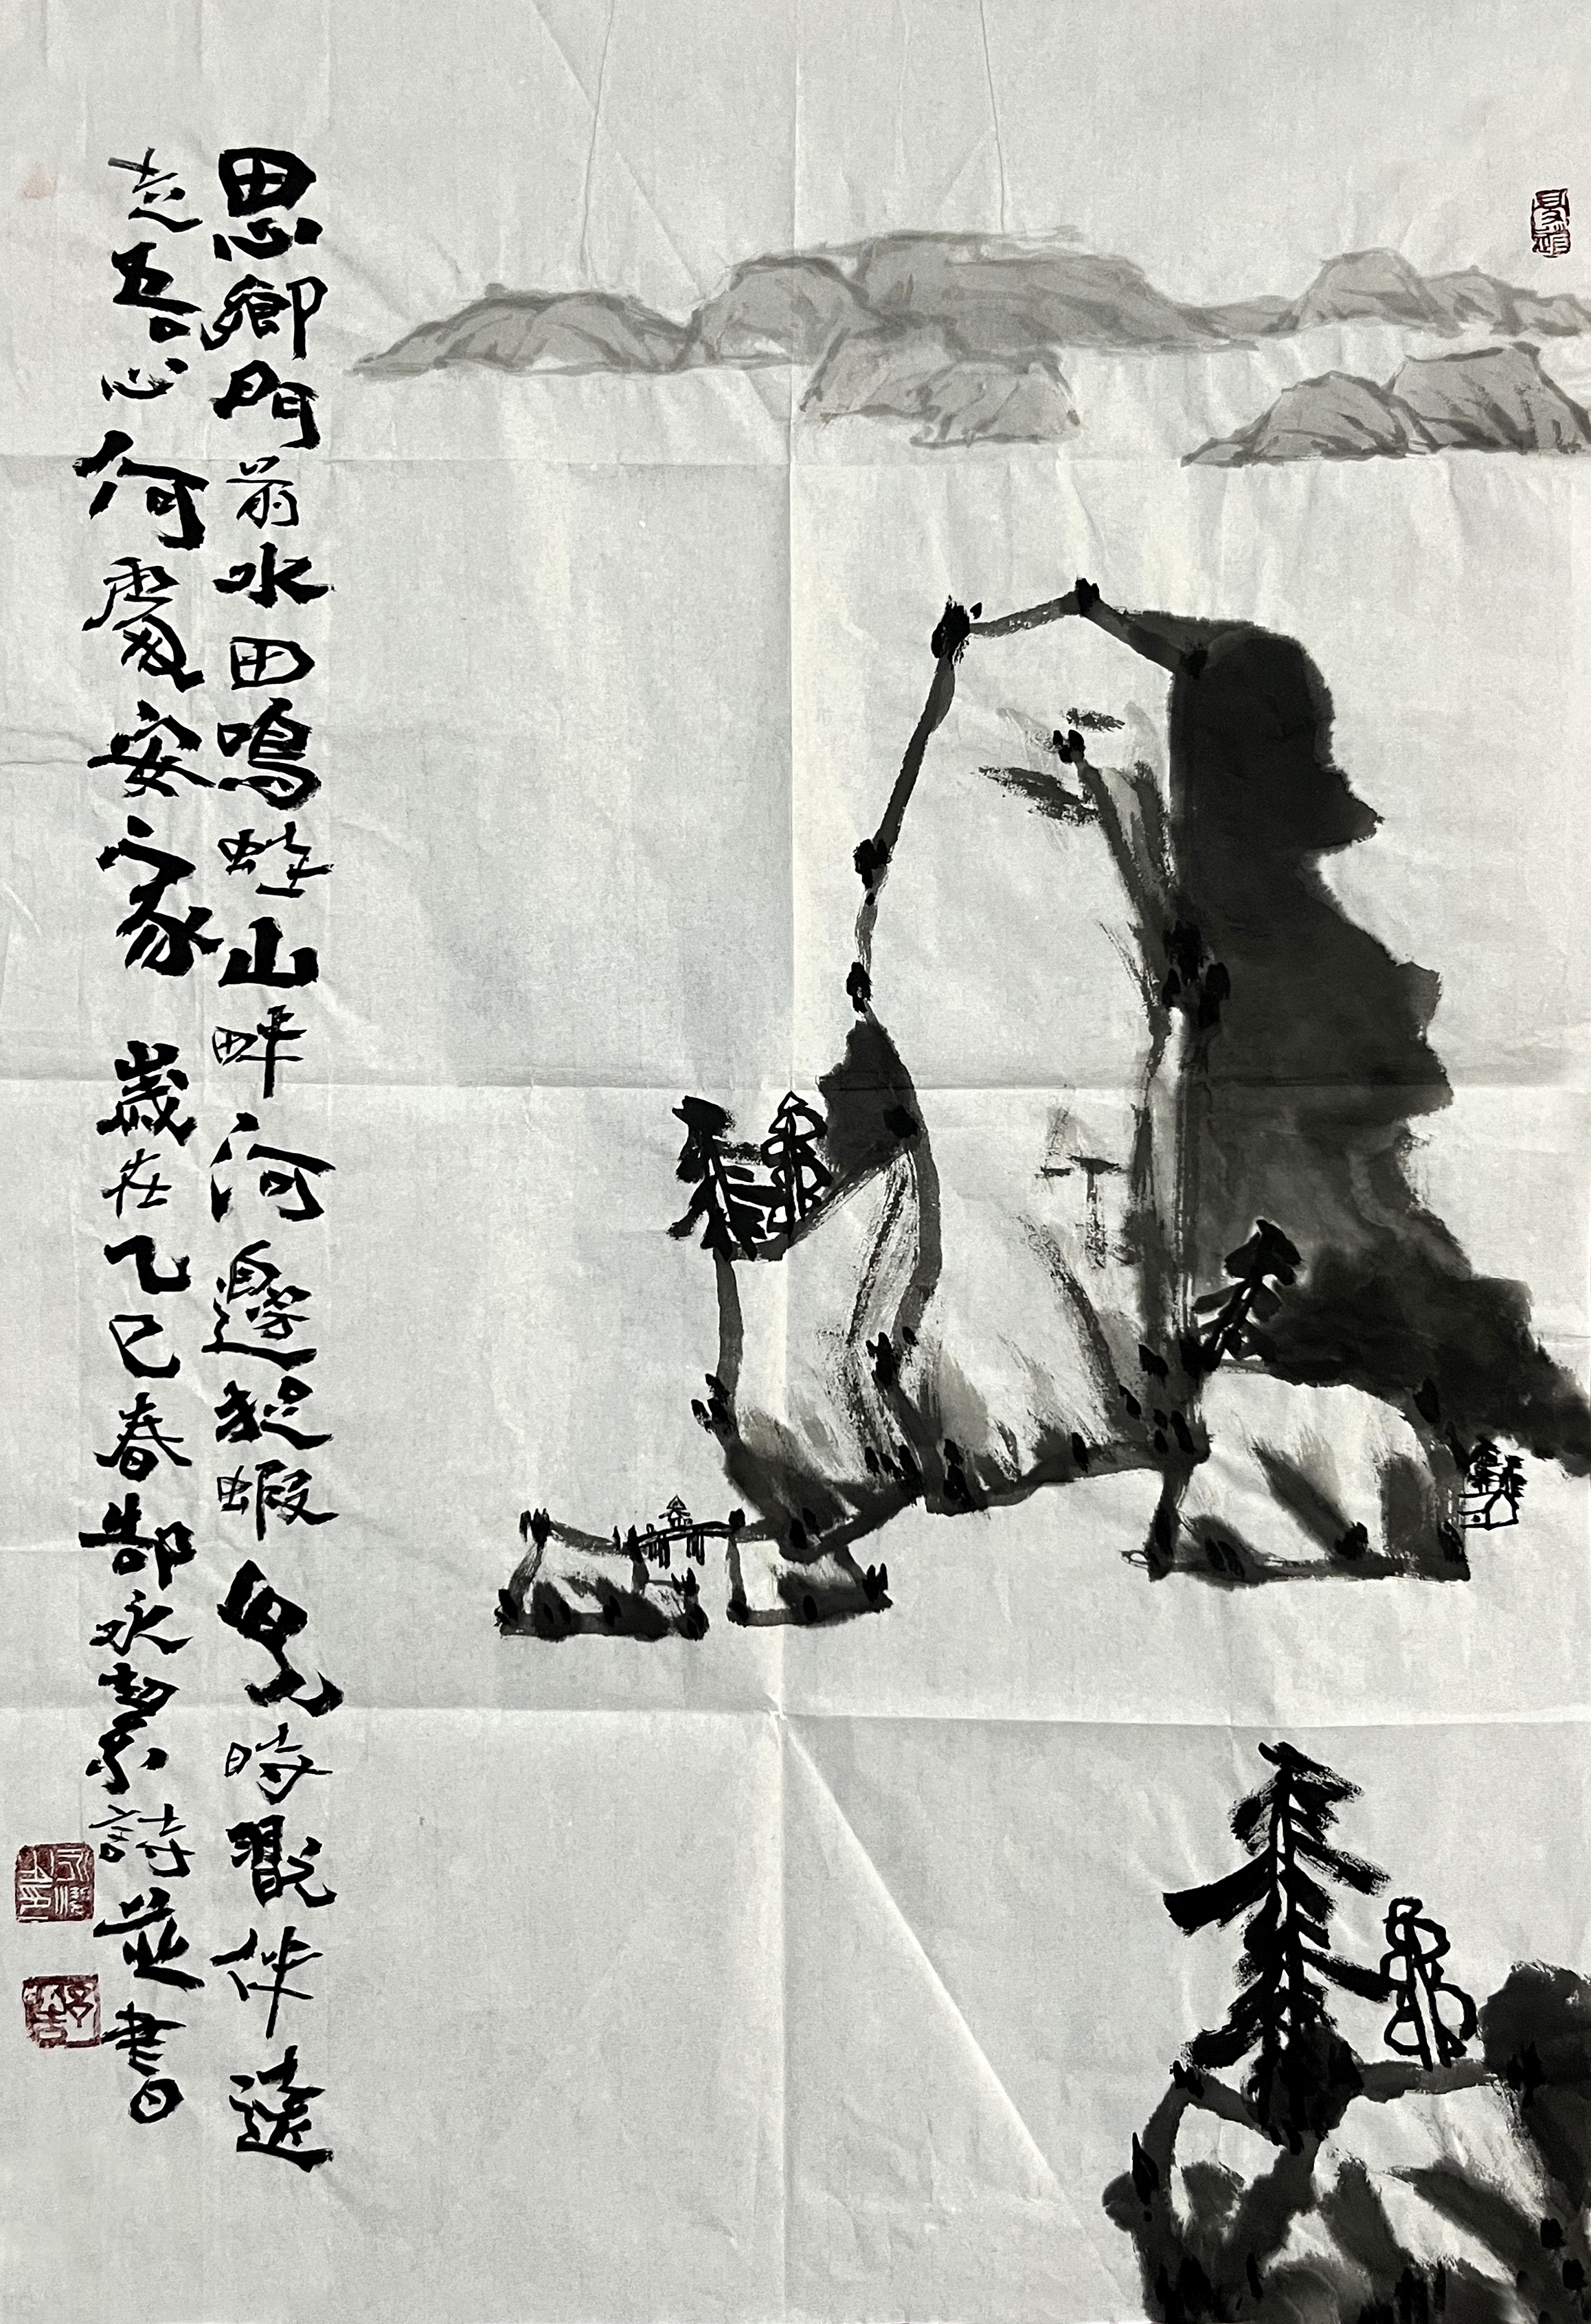 思鄉門前水田鳴蛙山畔河邊捉蝦兒時翫伴遠
走吾心何處安家 歲在乙巳春郜永絜詩並書